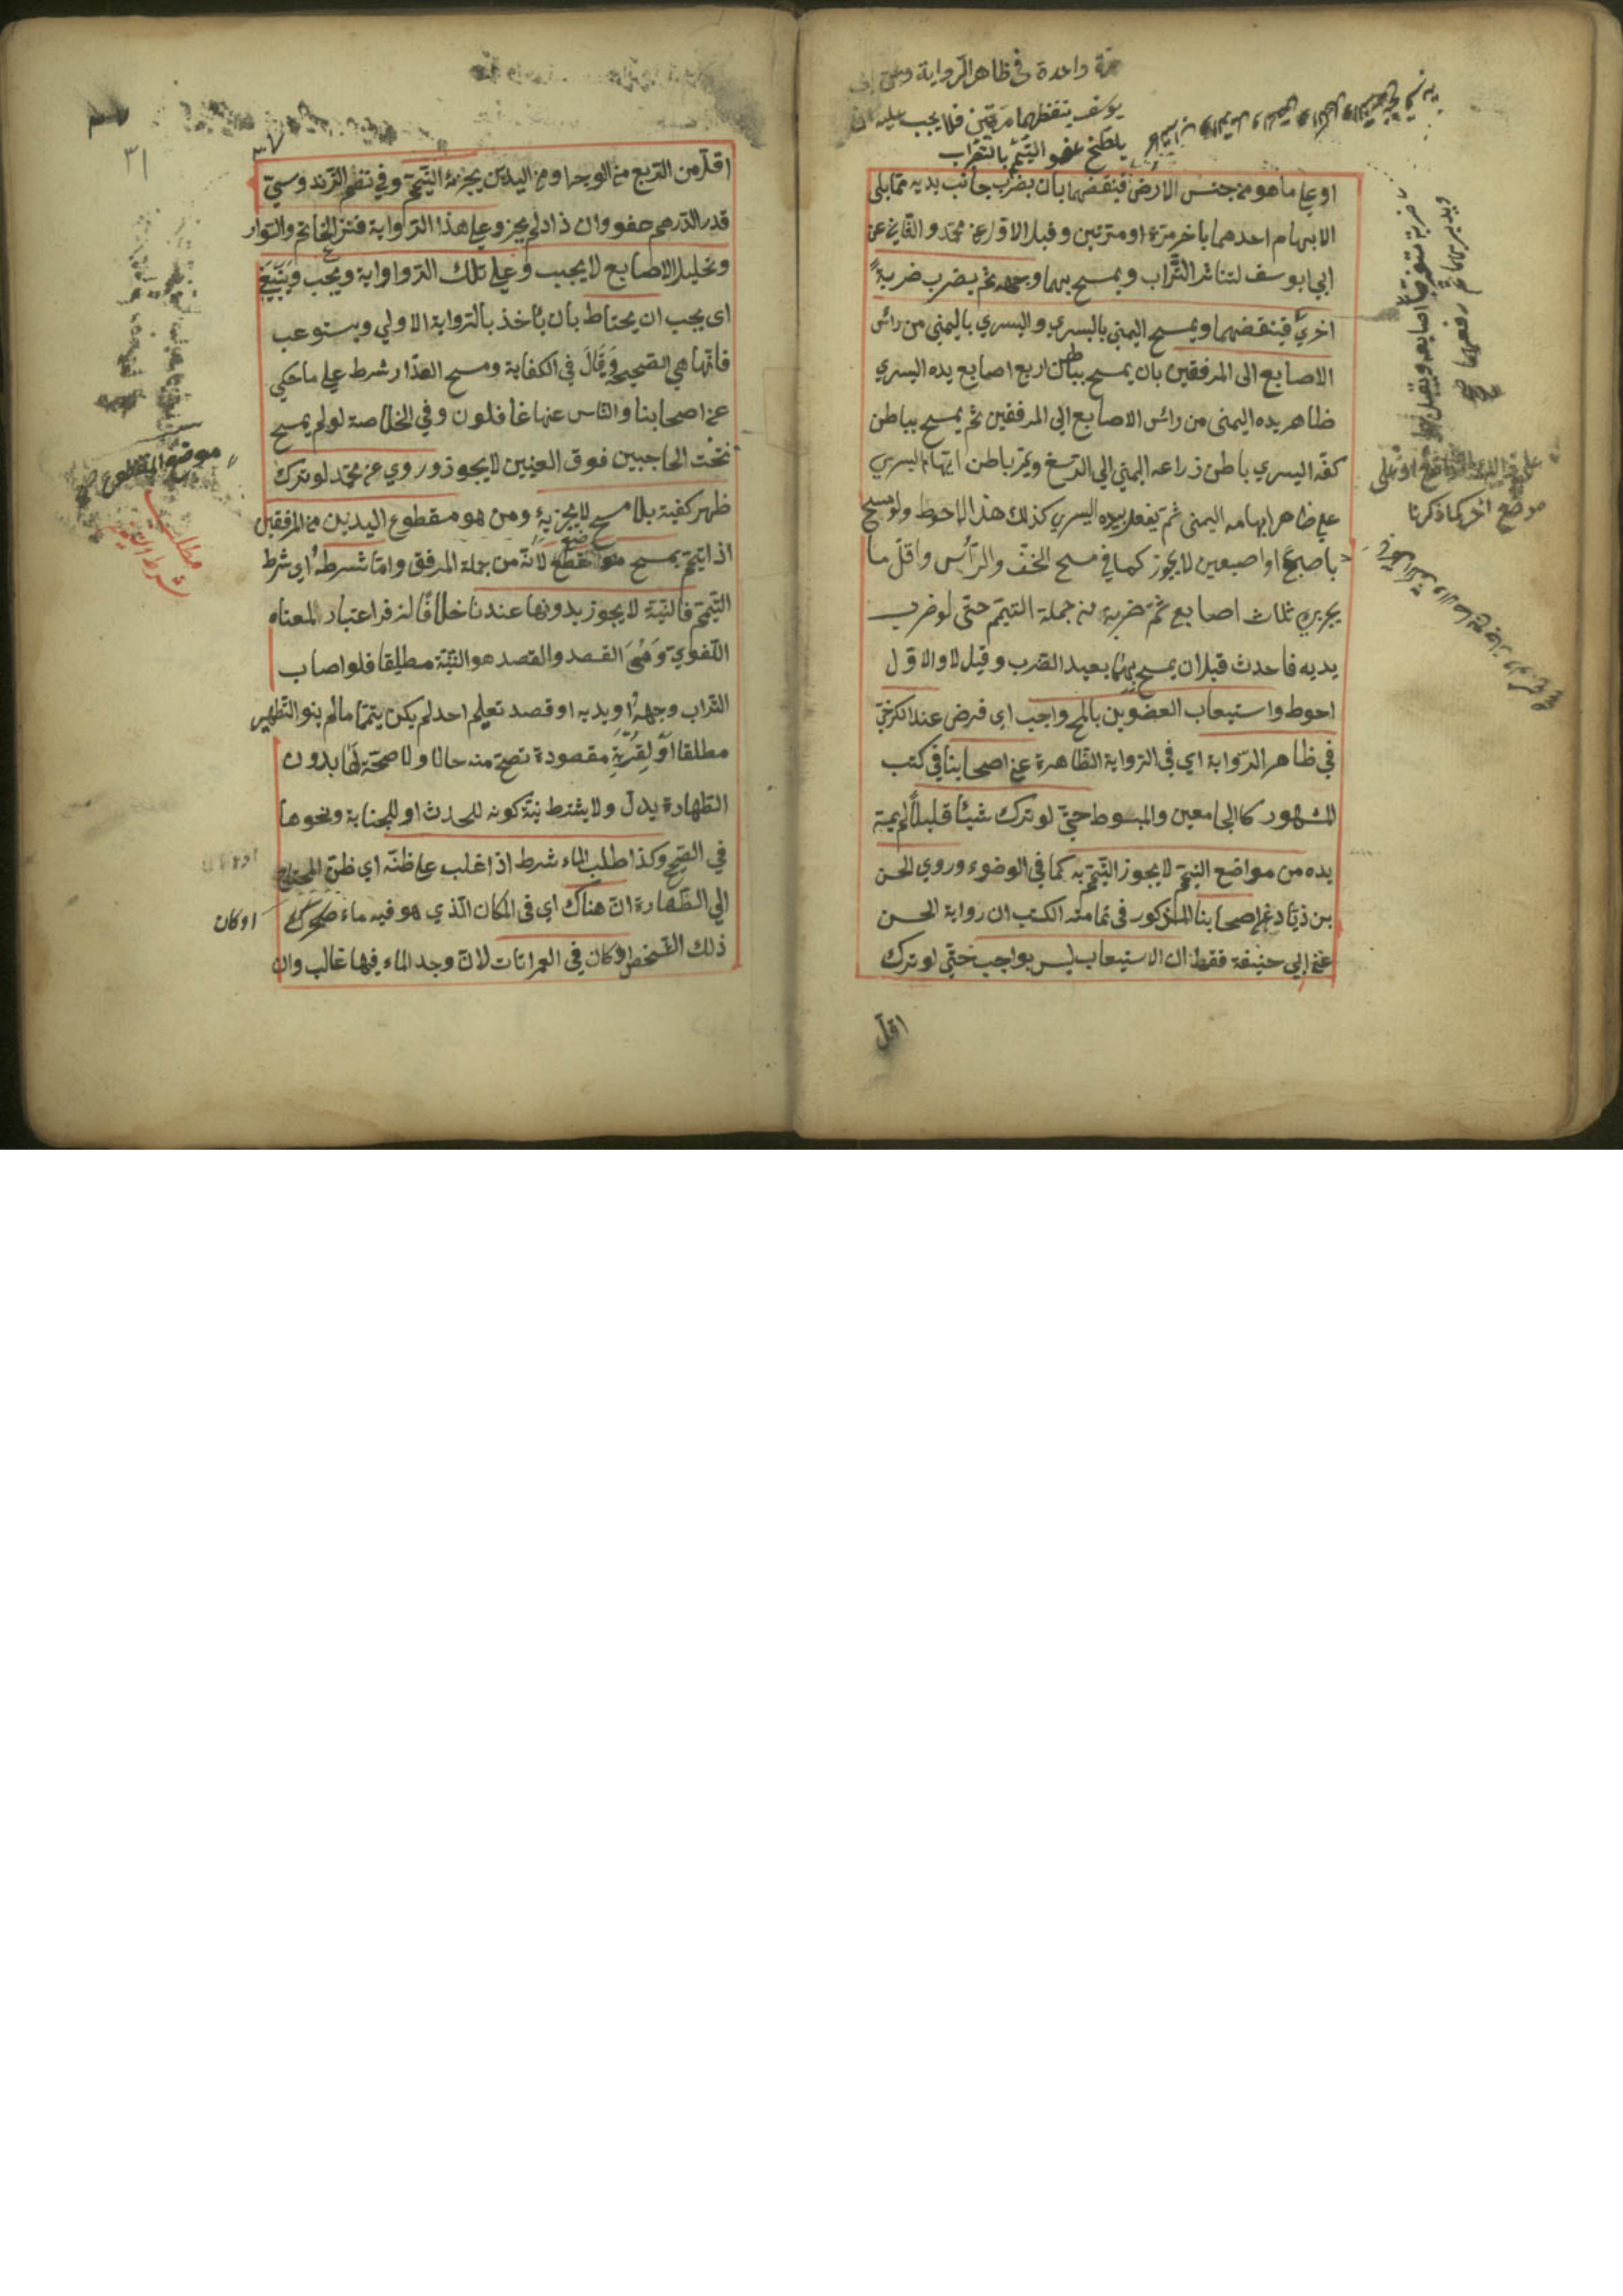 مرة واحدة في ظاهر الرواية وعن ابي
يوسف ينفضهما مرتين فلا يجب عليه ان
يلطخ عضو التيمم بالتراب
او على ما هو من جنس الارض فينفضهما بان يضرب جانب يديه مما يلى
الابهام احدهما باخر مرة او مرتين وقيل الاول عن محمد والثاني عن
ابي يوسف لتناثر التراب ويمسح بهما وجهه ثم يضرب ضربة
اخرى فينفضهما ويمسح اليمنى باليسرى واليسرى باليمنى من رأس
الاصابع الى المرفقين بان يمسح بباطن اربع اصابع يده اليسرى
ظاهر يده اليمنى من رأس الاصابع الى المرفقين ثم يمسح بباطن
كفه اليسرى باطن ذراعه اليمنى الى الرسغ ويمر باطن ابهامه اليسرى
على ظاهر ابهامه اليمنى ثم يفعل بيده اليسرى كذلك هذا الاحوط ولو مسح
باصبع او اصبعين لا يجوز كما في مسح الخف والرأس واقل ما
يجزيه ثلاث اصابع ثم ضربة من جملة التيمم حتى لو ضرب
يديه فاحدث قبل ان يمسح بهما يعيد الضرب وقيل لا والاول
احوط واستيعاب العضوين بالمسح واجب اي فرض عند الكرخي
في ظاهر الرواية اي في الرواية الظاهرة عن اصحابنا في كتب
المشهور كالجامعين والمبسوط حتى لو ترك شيئا قليلا لم يمسه
يده من مواضع التيمم لا يجوز التيمم به كما في الوضوء وروي الحسن
بن زياد عن اصحابنا المذكور في عامة الكتب ان رواية الحسن
عن ابي حنيفة فقط ان الاستيعاب ليس بواجب حتى لو ترك
اقل
موضع اخر كما ذكرنا
٣٧
٣١
اقل من الربع من الوجه او من اليدين يجزئه التيمم وفي نظم الزندوستي
قدر الدرهم عفو وان زاد لم يجز وعلى هذا الرواية فنزع الخاتم والسوار
وتخليل الاصابع لا يجب وعلى تلك الرواية ويجب وينبغي
اى يجب ان يحتاط بان يأخذ بالرواية الاولى ويستوعب
فانها هي الصحيحة وقال في الكفاية ومسح العذار شرط على ما حكي
عن اصحابنا والناس عنها غافلون وفي الخلاصة لو لم يمسح
تحت الحاجبين فوق العينين لا يجوز وروي عن محمد لو ترك
ظهر كفيه بلا مسح لا يجزيه ومن هو مقطوع اليدين من المرفقين
اذا تيمم يمسح موضع القطع لانه من جملة المرفق واما شرطه اي شرط
التيمم فالنية لا يجوز بدونها عندنا خلافا لزفر اعتبار المعناه
اللغوي وهي القصد والقصد هو النية مطلقا فلو اصاب
التراب وجهه او يديه او قصد تعليم احد لم يكن يتمما ما لم ينو التطهير
مطلقا او لقربة مقصودة تصح منه حالا ولا صحة لها بدون
الطهارة يدل ولا يشترط نية كونه للحدث او للجنابة ونحوها
في الصحيح وكذا طلب الماء شرط اذا غلب على ظنه اي ظن المحتاج
الى الطهارة ان هناك اي في المكان الذي هو فيه ماء
ذلك الشخص او كان في العمرانات لان وجد الماء فيها غالب وان
موضع المقطوع صح
مطلب
شرط التيمم
او كان